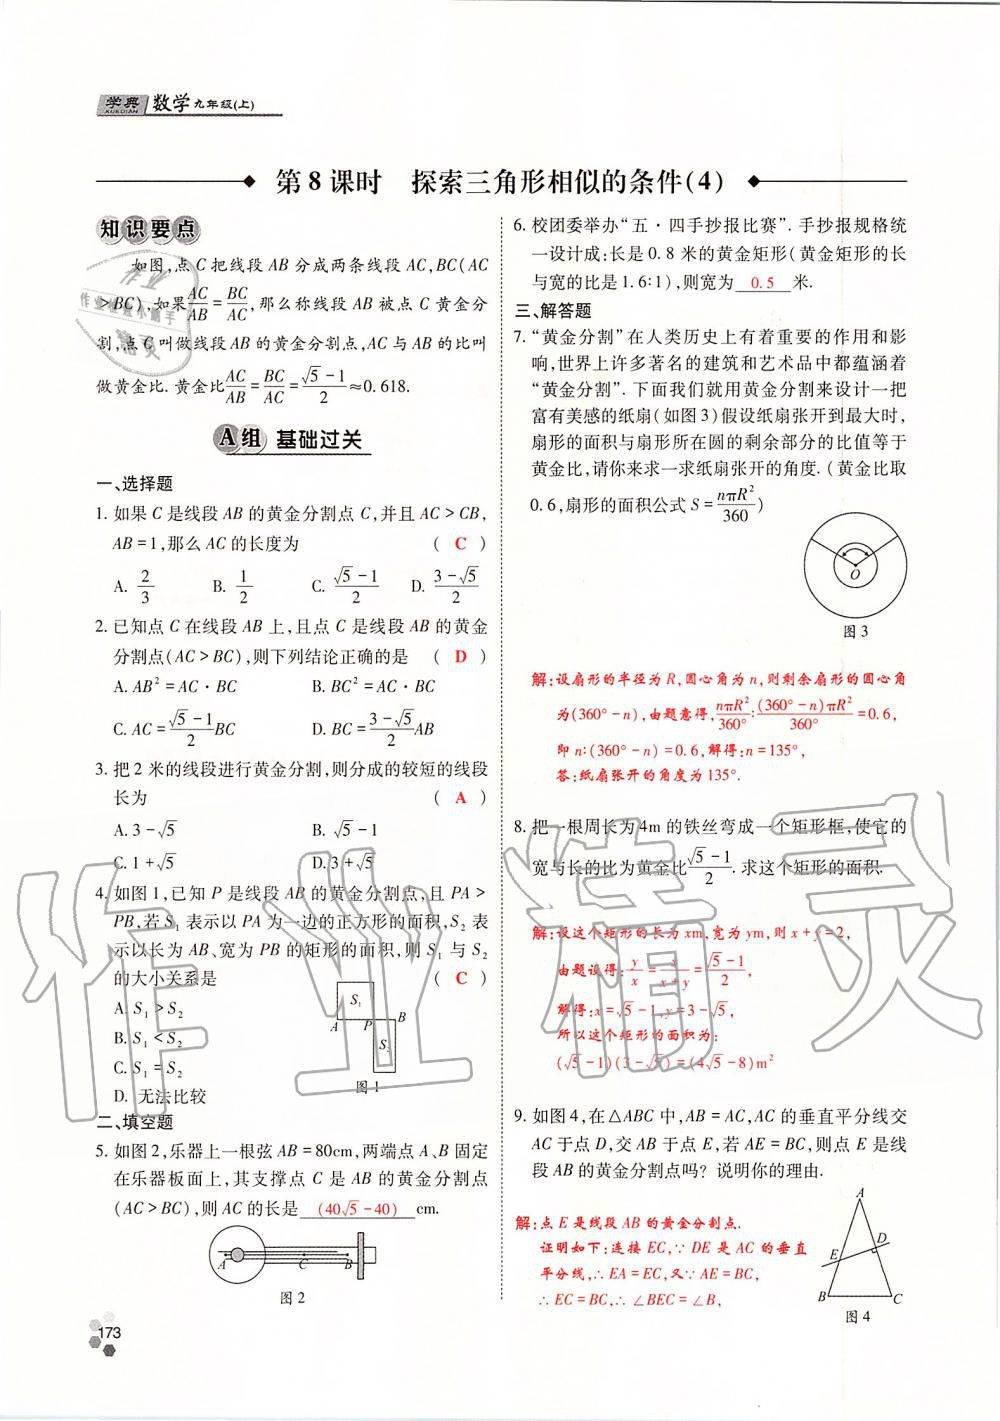 学典 XUEDIAN 数学九年级(上)
第8课时 探索三角形相似的条件(4)
知识要点
如图,点 C 把线段 AB 分成两条线段 AC,BC(AC
>BC),如果AC/AB=BC/AC,那么称线段 AB 被点 C 黄金分
割,点 C 叫做线段 AB 的黄金分割点,AC 与 AB 的比叫
做黄金比.黄金比AC/AB=BC/AC=(√5-1)/2≈0.618.
A组 基础过关
一、选择题
1. 如果 C 是线段 AB 的黄金分割点 C,并且 AC>CB,
AB=1,那么 AC 的长度为 ( C )
A. 2/3 B. 1/2 C. (√5-1)/2 D. (3-√5)/2
2. 已知点 C 在线段 AB 上,且点 C 是线段 AB 的黄金
分割点(AC>BC),则下列结论正确的是 ( D )
A. AB²=AC·BC B. BC²=AC·BC
C. AC=(√5-1)/2 BC D. BC=(3-√5)/2 AB
3. 把 2 米的线段进行黄金分割,则分成的较短的线段
长为 ( A )
A. 3-√5 B. √5-1
C. 1+√5 D. 3+√5
4. 如图1,已知 P 是线段 AB 的黄金分割点,且 PA>
PB,若 S₁ 表示以 PA 为一边的正方形的面积,S₂ 表
示以长为 AB、宽为 PB 的矩形的面积,则 S₁ 与 S₂
的大小关系是 ( C )
A. S₁>S₂
B. S₁<S₂
C. S₁=S₂
D. 无法比较
S₁
A P B
S₂
图1
二、填空题
5. 如图2,乐器上一根弦 AB=80cm,两端点 A、B 固定
在乐器板面上,其支撑点 C 是 AB 的黄金分割点
(AC>BC),则 AC 的长是 (40√5-40) cm.
A C B
图2
173
6. 校团委举办“五·四手抄报比赛”.手抄报规格统
一设计成:长是 0.8 米的黄金矩形(黄金矩形的长
与宽的比是 1.6:1),则宽为 0.5 米.
三、解答题
7. “黄金分割”在人类历史上有着重要的作用和影
响,世界上许多著名的建筑和艺术品中都蕴涵着
“黄金分割”.下面我们就用黄金分割来设计一把
富有美感的纸扇(如图3)假设纸扇张开到最大时,
扇形的面积与扇形所在圆的剩余部分的比值等于
黄金比,请你来求一求纸扇张开的角度.(黄金比取
0.6,扇形的面积公式 S=nπR²/360)
O
图3
解:设扇形的半径为 R,圆心角为 n,则剩余扇形的圆心角
为(360°-n),由题意得,nπR²/360°:(360°-n)πR²/360°=0.6,
即 n:(360°-n)=0.6,解得:n=135°,
答:纸扇张开的角度为135°.
8. 把一根周长为4m的铁丝弯成一个矩形框,使它的
宽与长的比为黄金比(√5-1)/2.求这个矩形的面积.
解:设这个矩形的长为 xm,宽为 ym,则 x+y=2,
由题设得:y/x=x/(x+y)=(√5-1)/2,
解得:x=√5-1,y=3-√5,
所以这个矩形的面积为:
(√5-1)(3-√5)=(4√5-8)m²
9. 如图4,在△ABC 中,AB=AC,AC 的垂直平分线交
AC 于点 D,交 AB 于点 E,若 AE=BC,则点 E 是线
段 AB 的黄金分割点吗? 说明你的理由.
解:点 E 是线段 AB 的黄金分割点.
证明如下:连接 EC,∵DE 是 AC 的垂直
平分线,∴EA=EC,又∵AE=BC,
∴EC=BC,∴∠BEC=∠B,
A
D
E
B C
图4
作业精灵